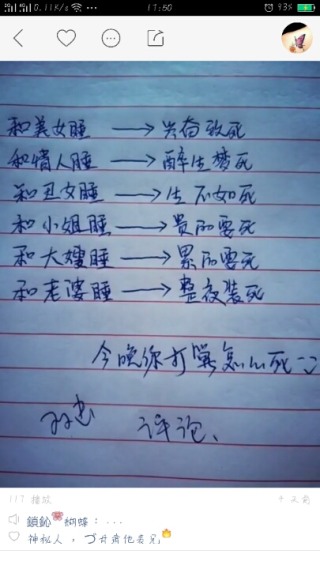 0.11K/s 17:50 93%
和美女睡 → 兴奋致死
和情人睡 → 醉生梦死
和丑女睡 → 生不如死
和小姐睡 → 贵的要死
和大嫂睡 → 累的要死
和老婆睡 → 整夜装死
今晚你打算怎么死
评论、
117 播放
4 天前
鎖鈊 蝴蝶: ...
神秘人,